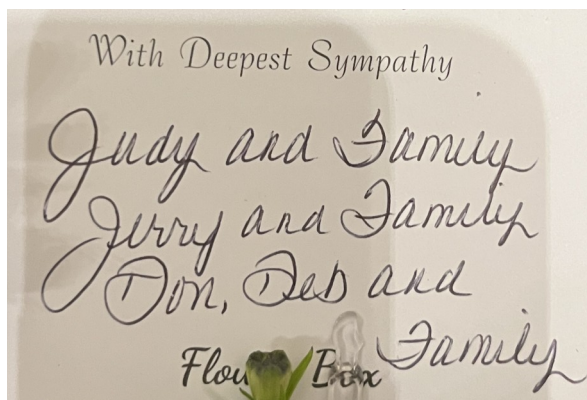 With Deepest Sympathy
Judy and Family
Jerry and Family
Don, Deb and
Family
Box